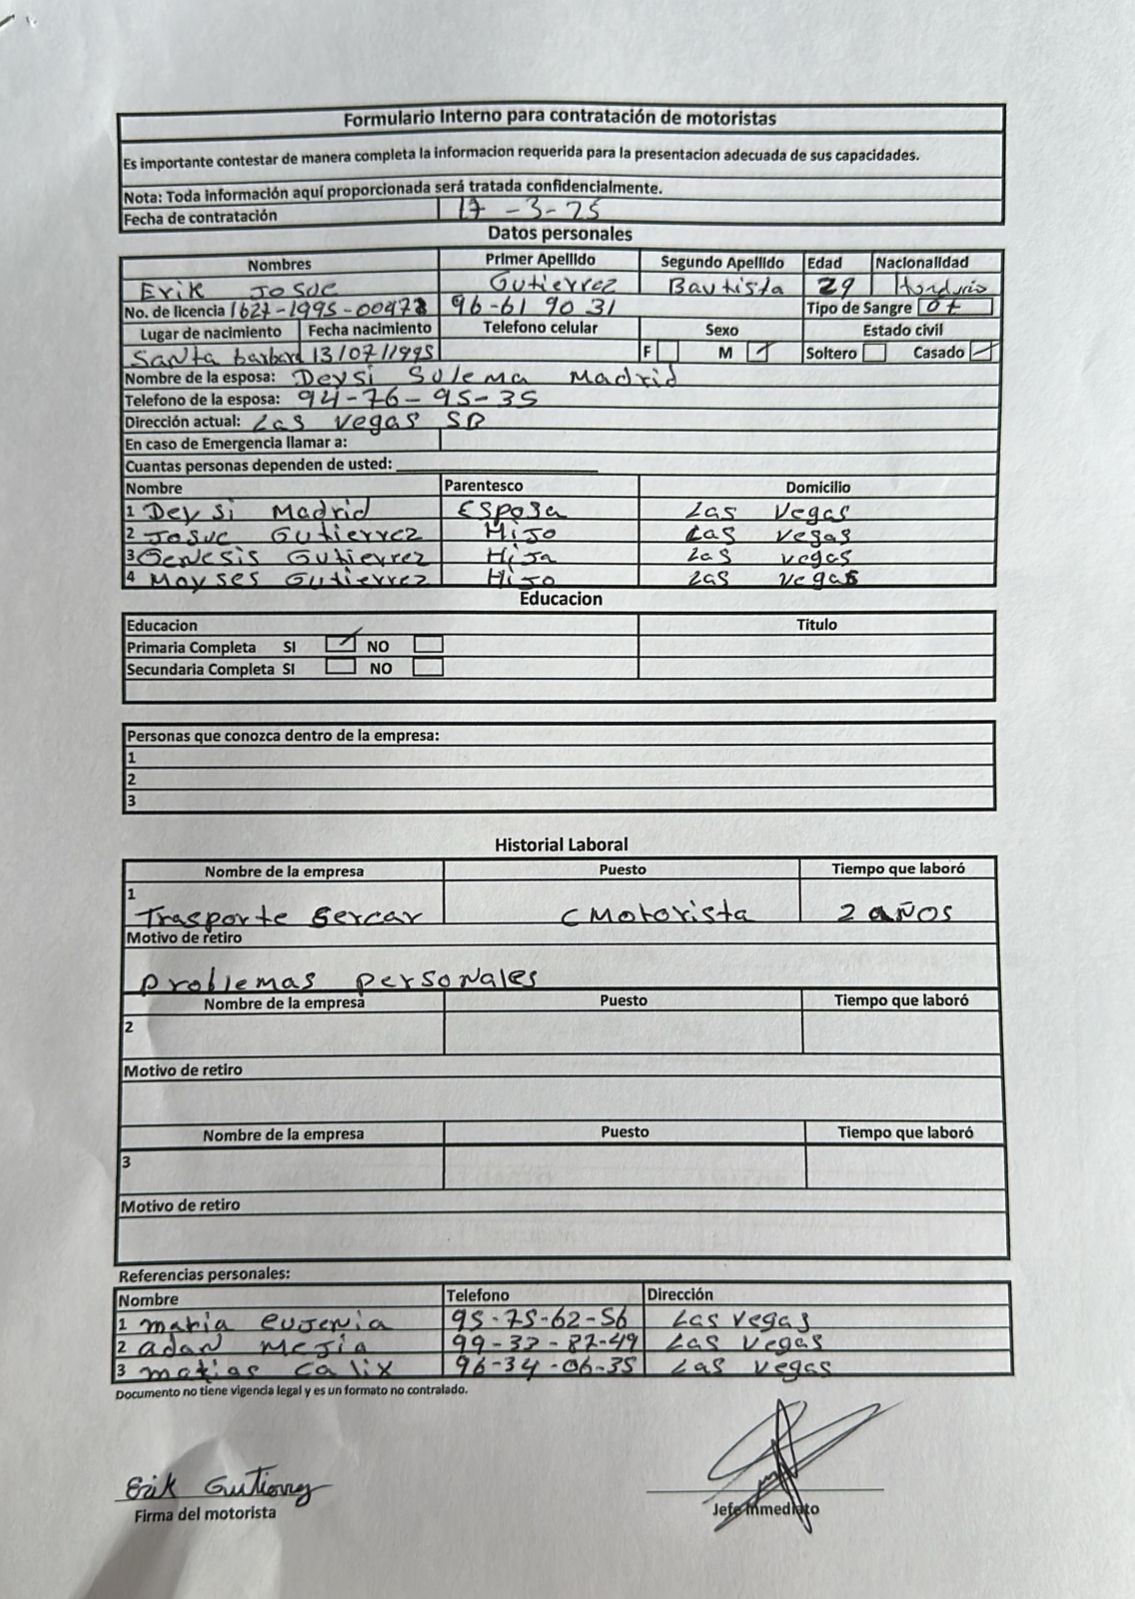 Formulario Interno para contratación de motoristas
Es importante contestar de manera completa la informacion requerida para la presentacion adecuada de sus capacidades.
Nota: Toda información aquí proporcionada será tratada confidencialmente.
Fecha de contratación 17-3-25
Datos personales
Nombres Primer Apellido Segundo Apellido Edad Nacionalidad
Erik Josue Gutierrez Bautista 29
No. de licencia 1627-1995-00473 96-61 90 31 Tipo de Sangre O+
Lugar de nacimiento Fecha nacimiento Telefono celular Sexo Estado civil
Santa barbara 13/07/1995 F M Soltero Casado
Nombre de la esposa: Deysi Sulema Madrid
Telefono de la esposa: 94-76-95-35
Dirección actual: Las Vegas SB
En caso de Emergencia llamar a:
Cuantas personas dependen de usted:
Nombre Parentesco Domicilio
1 Deysi Madrid Esposa Las Vegas
2 Josue Gutierrez Hijo Las Vegas
3 Genesis Gutierrez Hija Las Vegas
4 Moyses Gutierrez Hijo Las Vegas
Educacion
Educacion Titulo
Primaria Completa SI NO
Secundaria Completa SI NO
Personas que conozca dentro de la empresa:
1
2
3
Historial Laboral
Nombre de la empresa Puesto Tiempo que laboró
1
Trasporte Gercar Motorista 2 años
Motivo de retiro
problemas personales
Nombre de la empresa Puesto Tiempo que laboró
2
Motivo de retiro
Nombre de la empresa Puesto Tiempo que laboró
3
Motivo de retiro
Referencias personales:
Nombre Telefono Dirección
1 maria eugenia 95-75-62-56 Las Vegas
2 adan Mejia 99-33-87-49 Las Vegas
3 matias calix 96-34-06-35 Las Vegas
Documento no tiene vigencia legal y es un formato no contralado.
Erik Gutierrez
Firma del motorista Jefe Inmediato